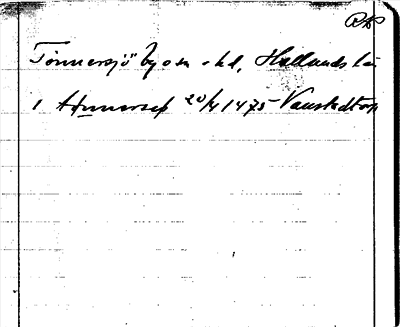 RAP
Tönnersjö by o sn o hd, Hallands län
i Thnnersep 20/4 1475 Vaustadtorp